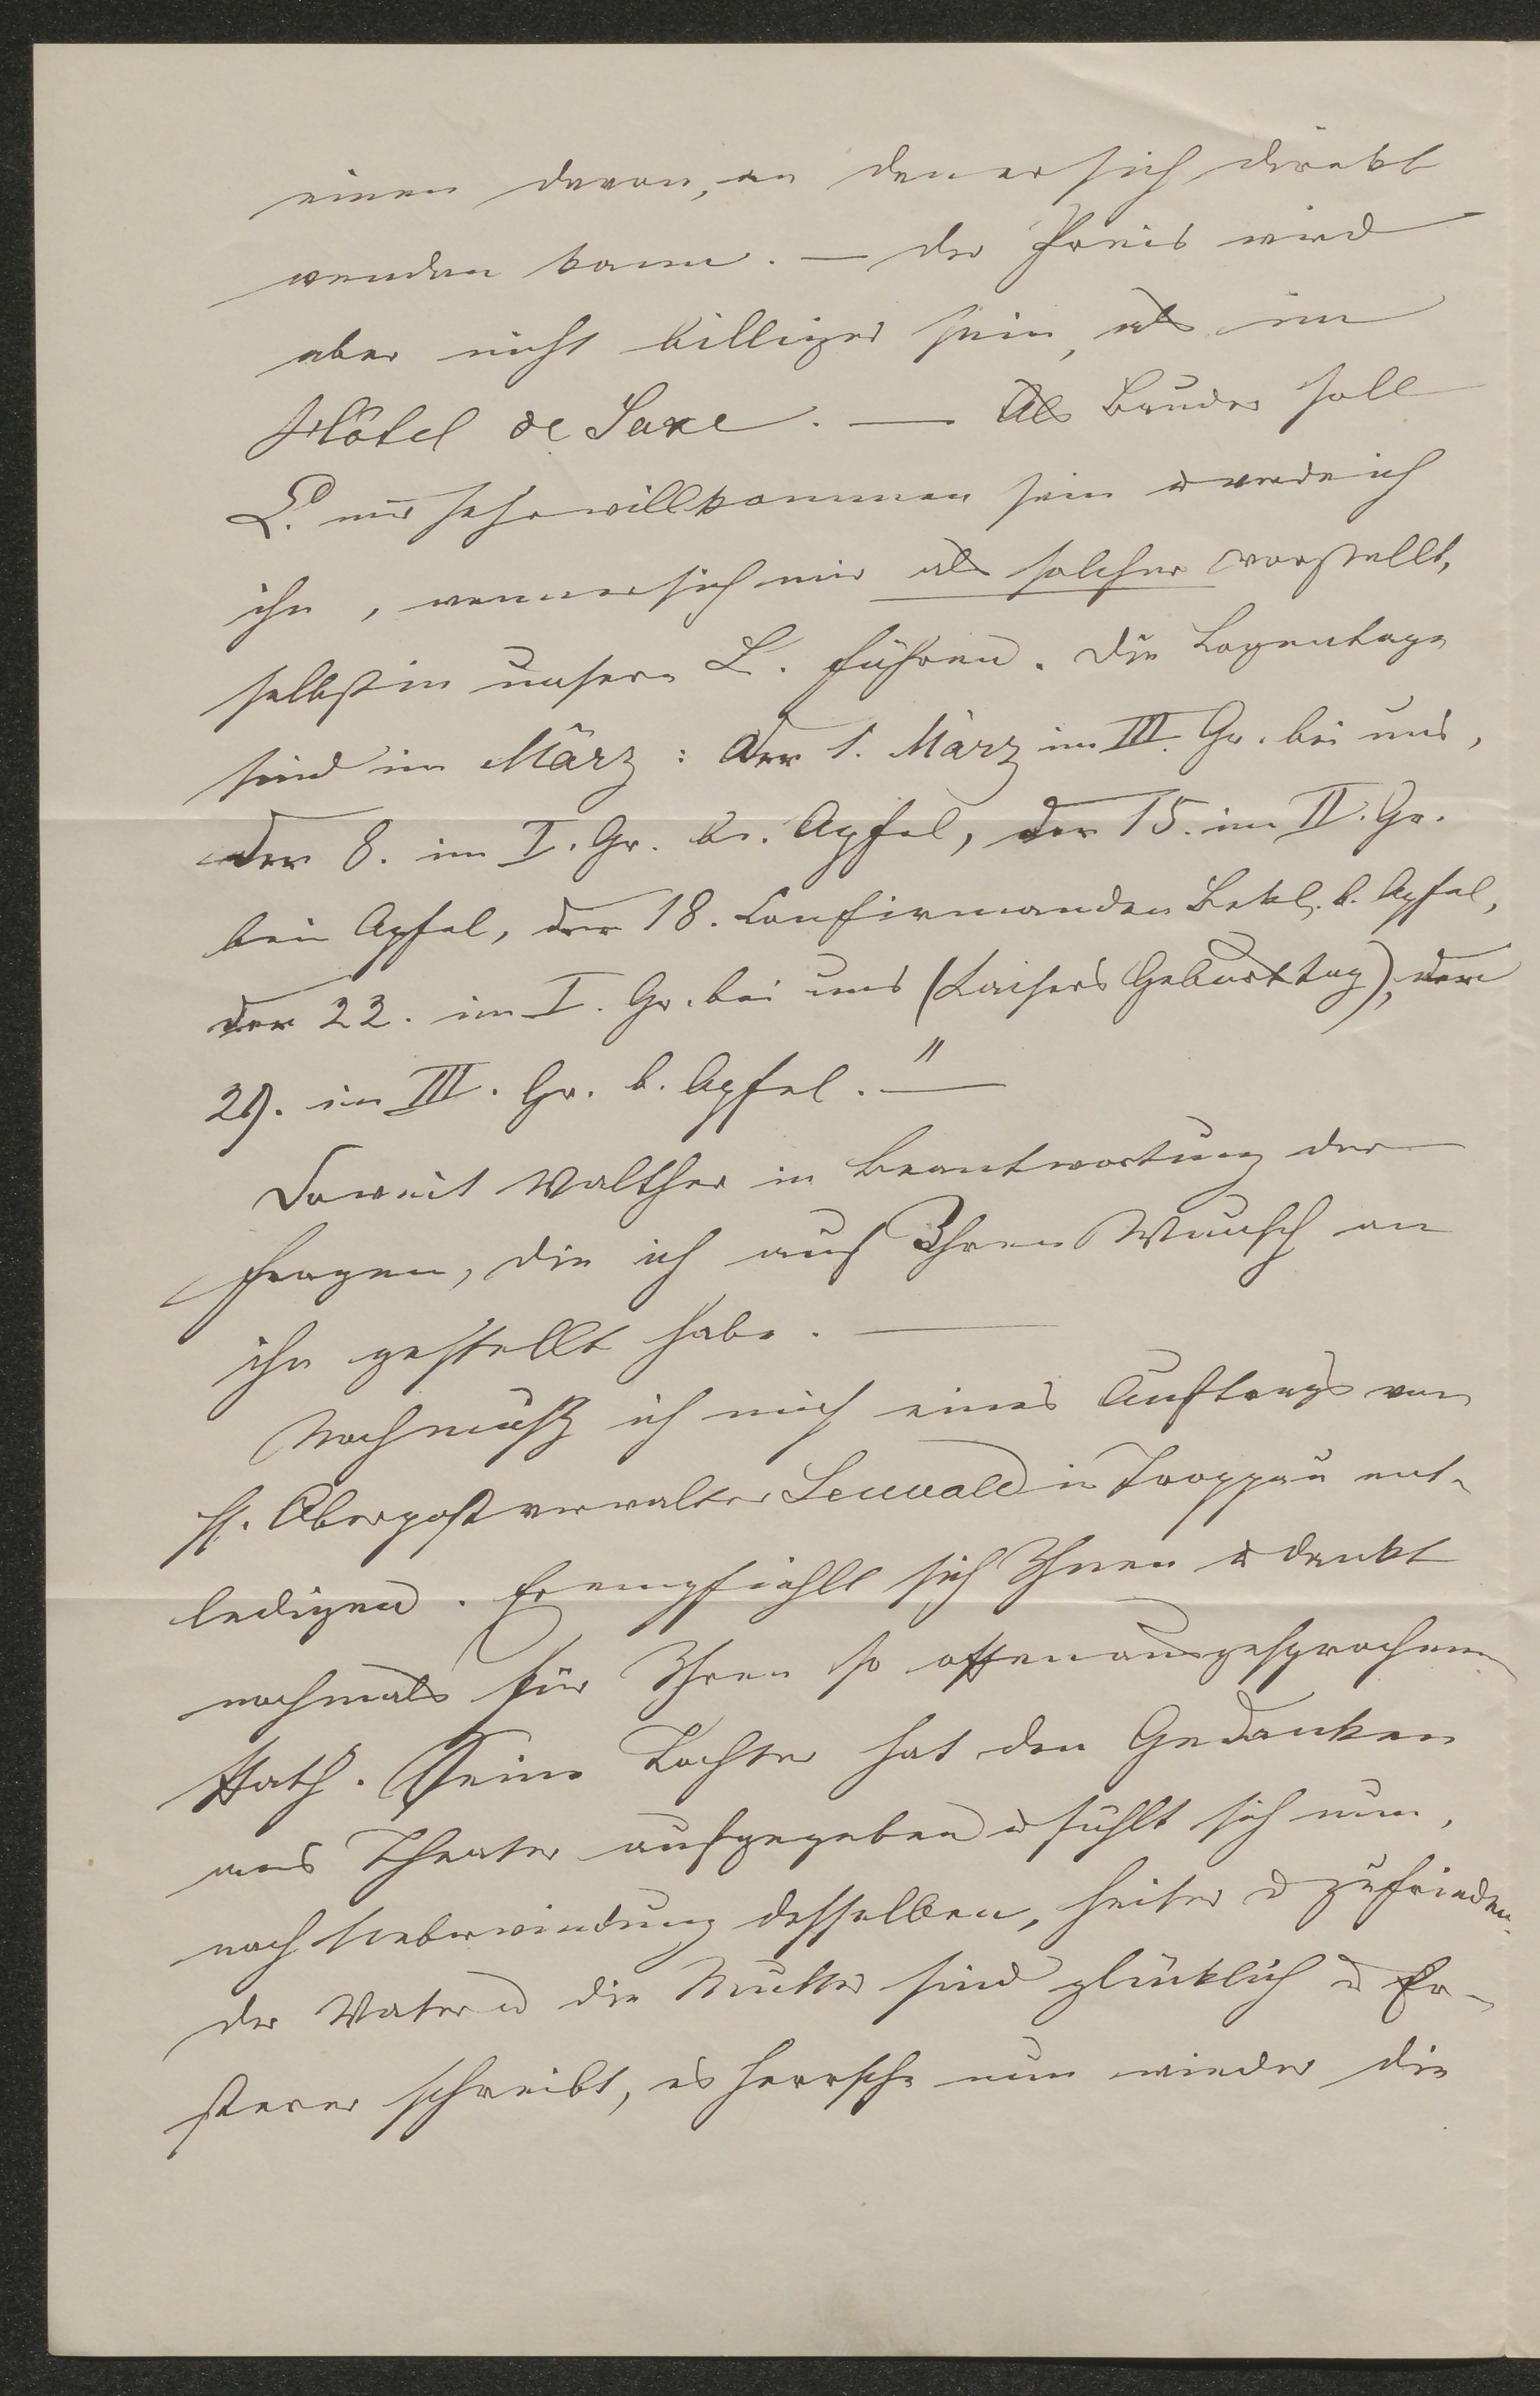 einen davon, an den er sich direkt
wenden kann. — Der Preis wird
aber nicht billiger sein, als im
Hôtel de Saxe. — Als Bruder soll
L. mir sehr willkommen sein u werde ich
ihn, wenn er sich mir als solcher vorstellt,
selbst in unsere L. führen. Die Logentage
sind im März: Der 1. März im III. Gr. bei uns,
der 8. im I. Gr. b. Apfel, der 15. im II. Gr.
beim Apfel, der 18. Confirmanden Bekl. b. Apfel,
der 22. im I. Gr. bei uns (Kaisers Geburtstag), der
29. im III. Gr. b. Apfel." —
Soweit Walther in Beantwortung der
Fragen, die ich auf Ihren Wunsch an
ihn gestellt habe. —
Noch muß ich mich eines Auftrags von
H. Oberpostverwalter Leuwald in Troppau ent-
ledigen. Er empfiehlt sich Ihnen u dankt
nochmals für Ihren so offen ausgesprochenen
Rath. Seine Tochter hat den Gedanken
ans Theater aufgegeben u fühlt sich nun,
nach Ueberwindung desselben, heiter u zufrieden.
Der Vater u die Mutter sind glücklich u Er-
sterer schreibt, es herrsche nun wieder die